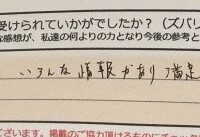 受けられていかがでしたか?（ズバリ
な感想が、私達の何よりの力となり今後の参考と
いろんな情報があり満足
ございます。掲載のご協力頂けるものにチェック